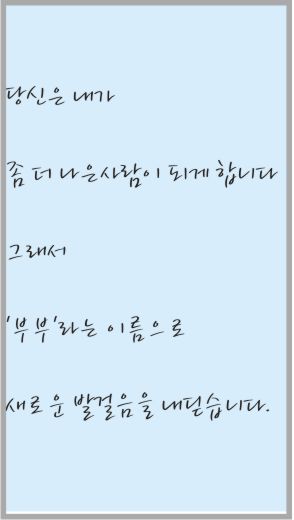 당신은 내가
좀 더 나은사람이 되게 합니다
그래서
'부부'라는 이름으로
새로운 발걸음을 내딛습니다.